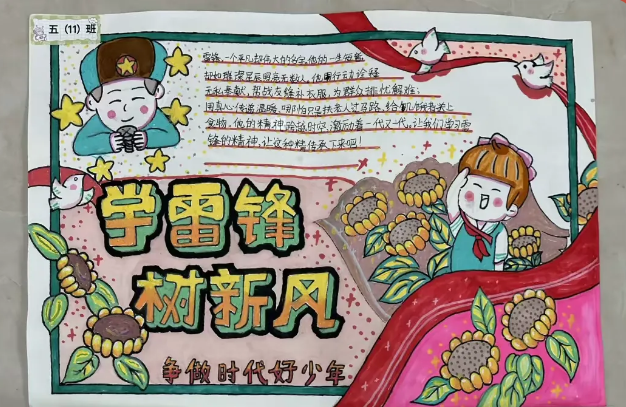 五（11）班
雷锋，一个平凡却伟大的名字，他的一生短暂
却如璀璨星辰照亮无数人，他用行动诠释
无私奉献，帮战友缝补衣服，为群众排忧解难，
用真心传递温暖，哪怕只是扶老人过马路，给
食物，他的精神跨越时空激励着一代又一代，让我们学习雷
锋的精神，让这种精神传承下来吧！
学雷锋
树新风
争做时代好少年